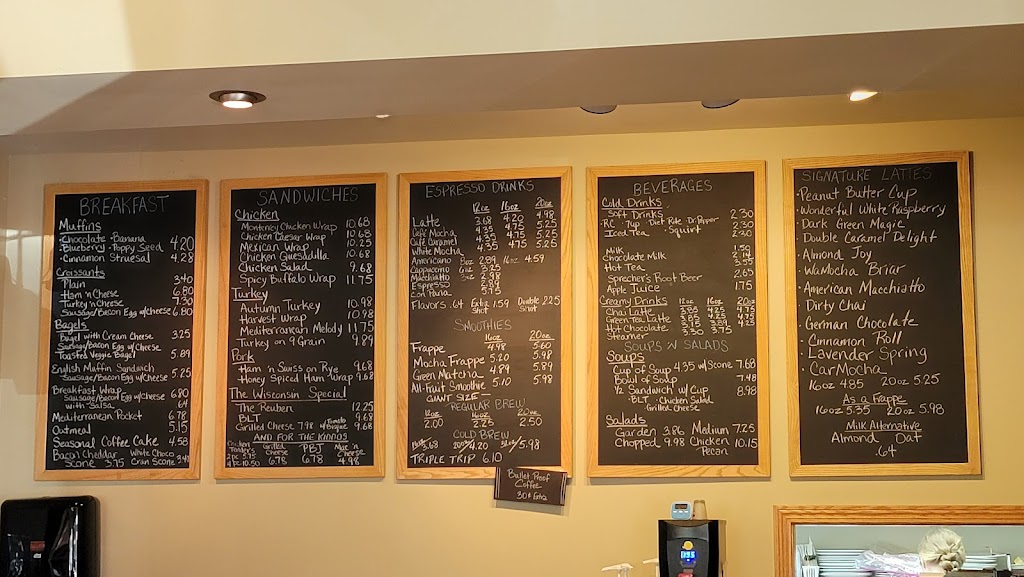 BREAKFAST
Muffins
Chocolate · Banana
Blueberry · Poppy Seed 4.20
Cinnamon Struesal 4.28
Croissants
Plain 3.40
Ham 'n Cheese 6.80
Turkey 'n Cheese 7.30
Sausage/Bacon Egg w/Cheese 6.80
Bagels
Bagel with Cream Cheese 3.25
Sausage/Bacon Egg w/Cheese
Toasted Veggie Bagel 5.89
English Muffin Sandwich
Sausage/Bacon Egg w/Cheese 5.25
Breakfast Wrap 6.80
Sausage/Bacon Egg w/Cheese
with Salsa .64
Mediterranean Pocket 6.78
Oatmeal 5.15
Seasonal Coffee Cake 4.58
Bacon Cheddar Scone 3.75
White Choco Cran Scone
SANDWICHES
Chicken
Monterey Chicken Wrap 10.68
Chicken Caesar Wrap 10.68
Mexican Wrap 10.25
Chicken Quesadilla 10.68
Chicken Salad 9.68
Spicy Buffalo Wrap 11.75
Turkey
Autumn Turkey 10.98
Harvest Wrap 10.98
Mediterranean Melody 11.75
Turkey on 9 Grain 9.89
Pork
Ham 'n Swiss on Rye 9.68
Honey Spiced Ham Wrap 9.68
The Wisconsin Special
The Reuben 12.25
BLT 9.68
Grilled Cheese 7.98 w/Tomato Bisque 9.68
AND FOR THE KIDDOS
Chicken Tenders
2pc 5.75
4pc 10.50
Grilled Cheese 6.78
PBJ 6.78
Mac 'n Cheese 4.98
ESPRESSO DRINKS
12oz 16oz 20oz
Latte 3.68 4.20 4.98
Café Mocha 4.35 4.75 5.25
Café Caramel 4.35 4.75 5.25
White Mocha 4.35 4.75 5.25
Americano 8oz 2.89 16oz 4.59
Cappuccino 6oz 3.25
Macchiatto 3oz 2.98
Espresso
Con Pana
Flavors .64 Extra Shot 1.59 Double Shot 2.25
SMOOTHIES
16oz 20oz
Frappe 4.98 5.60
Mocha Frappe 5.20 5.98
Green Matcha 4.89 5.89
All-Fruit Smoothie 5.10 5.98
GIANT SIZE
REGULAR BREW
12oz 16oz 20oz
2.00 2.25 2.50
COLD BREW
4.20 5.98
TRIPLE TRIP 6.10
Bullet Proof
Coffee
30¢ Extra
BEVERAGES
Cold Drinks
Soft Drinks 2.30
RC · 7up · Diet Rite · Dr. Pepper
· Squirt
Iced Tea 2.90
Milk 1.50
Chocolate Milk
Hot Tea
Sprecher's Root Beer 2.65
Apple Juice 1.75
Creamy Drinks 12oz 16oz 20oz
Chai Latte 3.85 4.25 4.75
Green Tea Latte
Hot Chocolate
Steamer
SOUPS 'N SALADS
Soups
Cup of Soup 4.35 w/Scone 7.68
Bowl of Soup 7.48
1/2 Sandwich w/Cup 8.98
· BLT · Chicken Salad
· Grilled Cheese
Salads
Garden 3.86 Medium 7.25
Chopped 9.98 Chicken Pecan 10.15
SIGNATURE LATTES
· Peanut Butter Cup
· Wonderful White Raspberry
· Dark Green Magic
· Double Caramel Delight
· Almond Joy
· WaMocha Briar
· American Macchiatto
· Dirty Chai
· German Chocolate
· Cinnamon Roll
· Lavender Spring
· CarMocha
16oz 4.85 20oz 5.25
As a Frappe
16oz 5.35 20oz 5.98
Milk Alternative
Almond Oat
.64